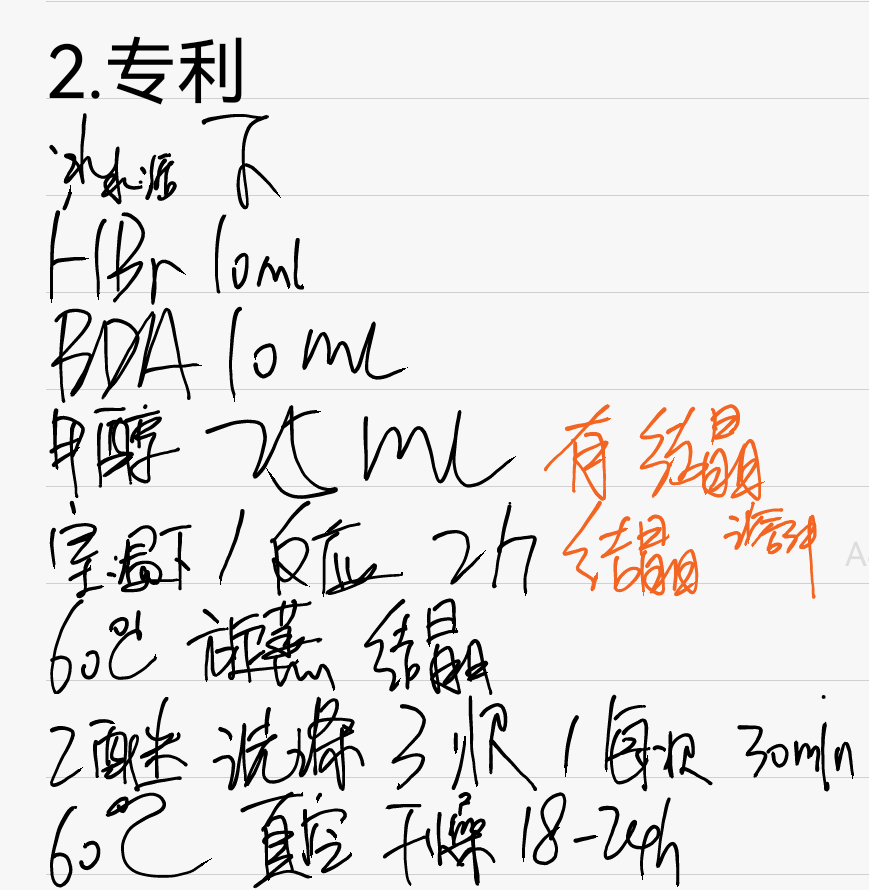 2.专利
冰水浴 下
HBr 10ml
BDA 10ml
甲醇 25ml 有结晶
室温下 / 反应 2h 结晶 溶解
60℃ 旋蒸 结晶
乙醚 洗涤 3次 / 每次 30min
60℃ 真空 干燥 18-24h